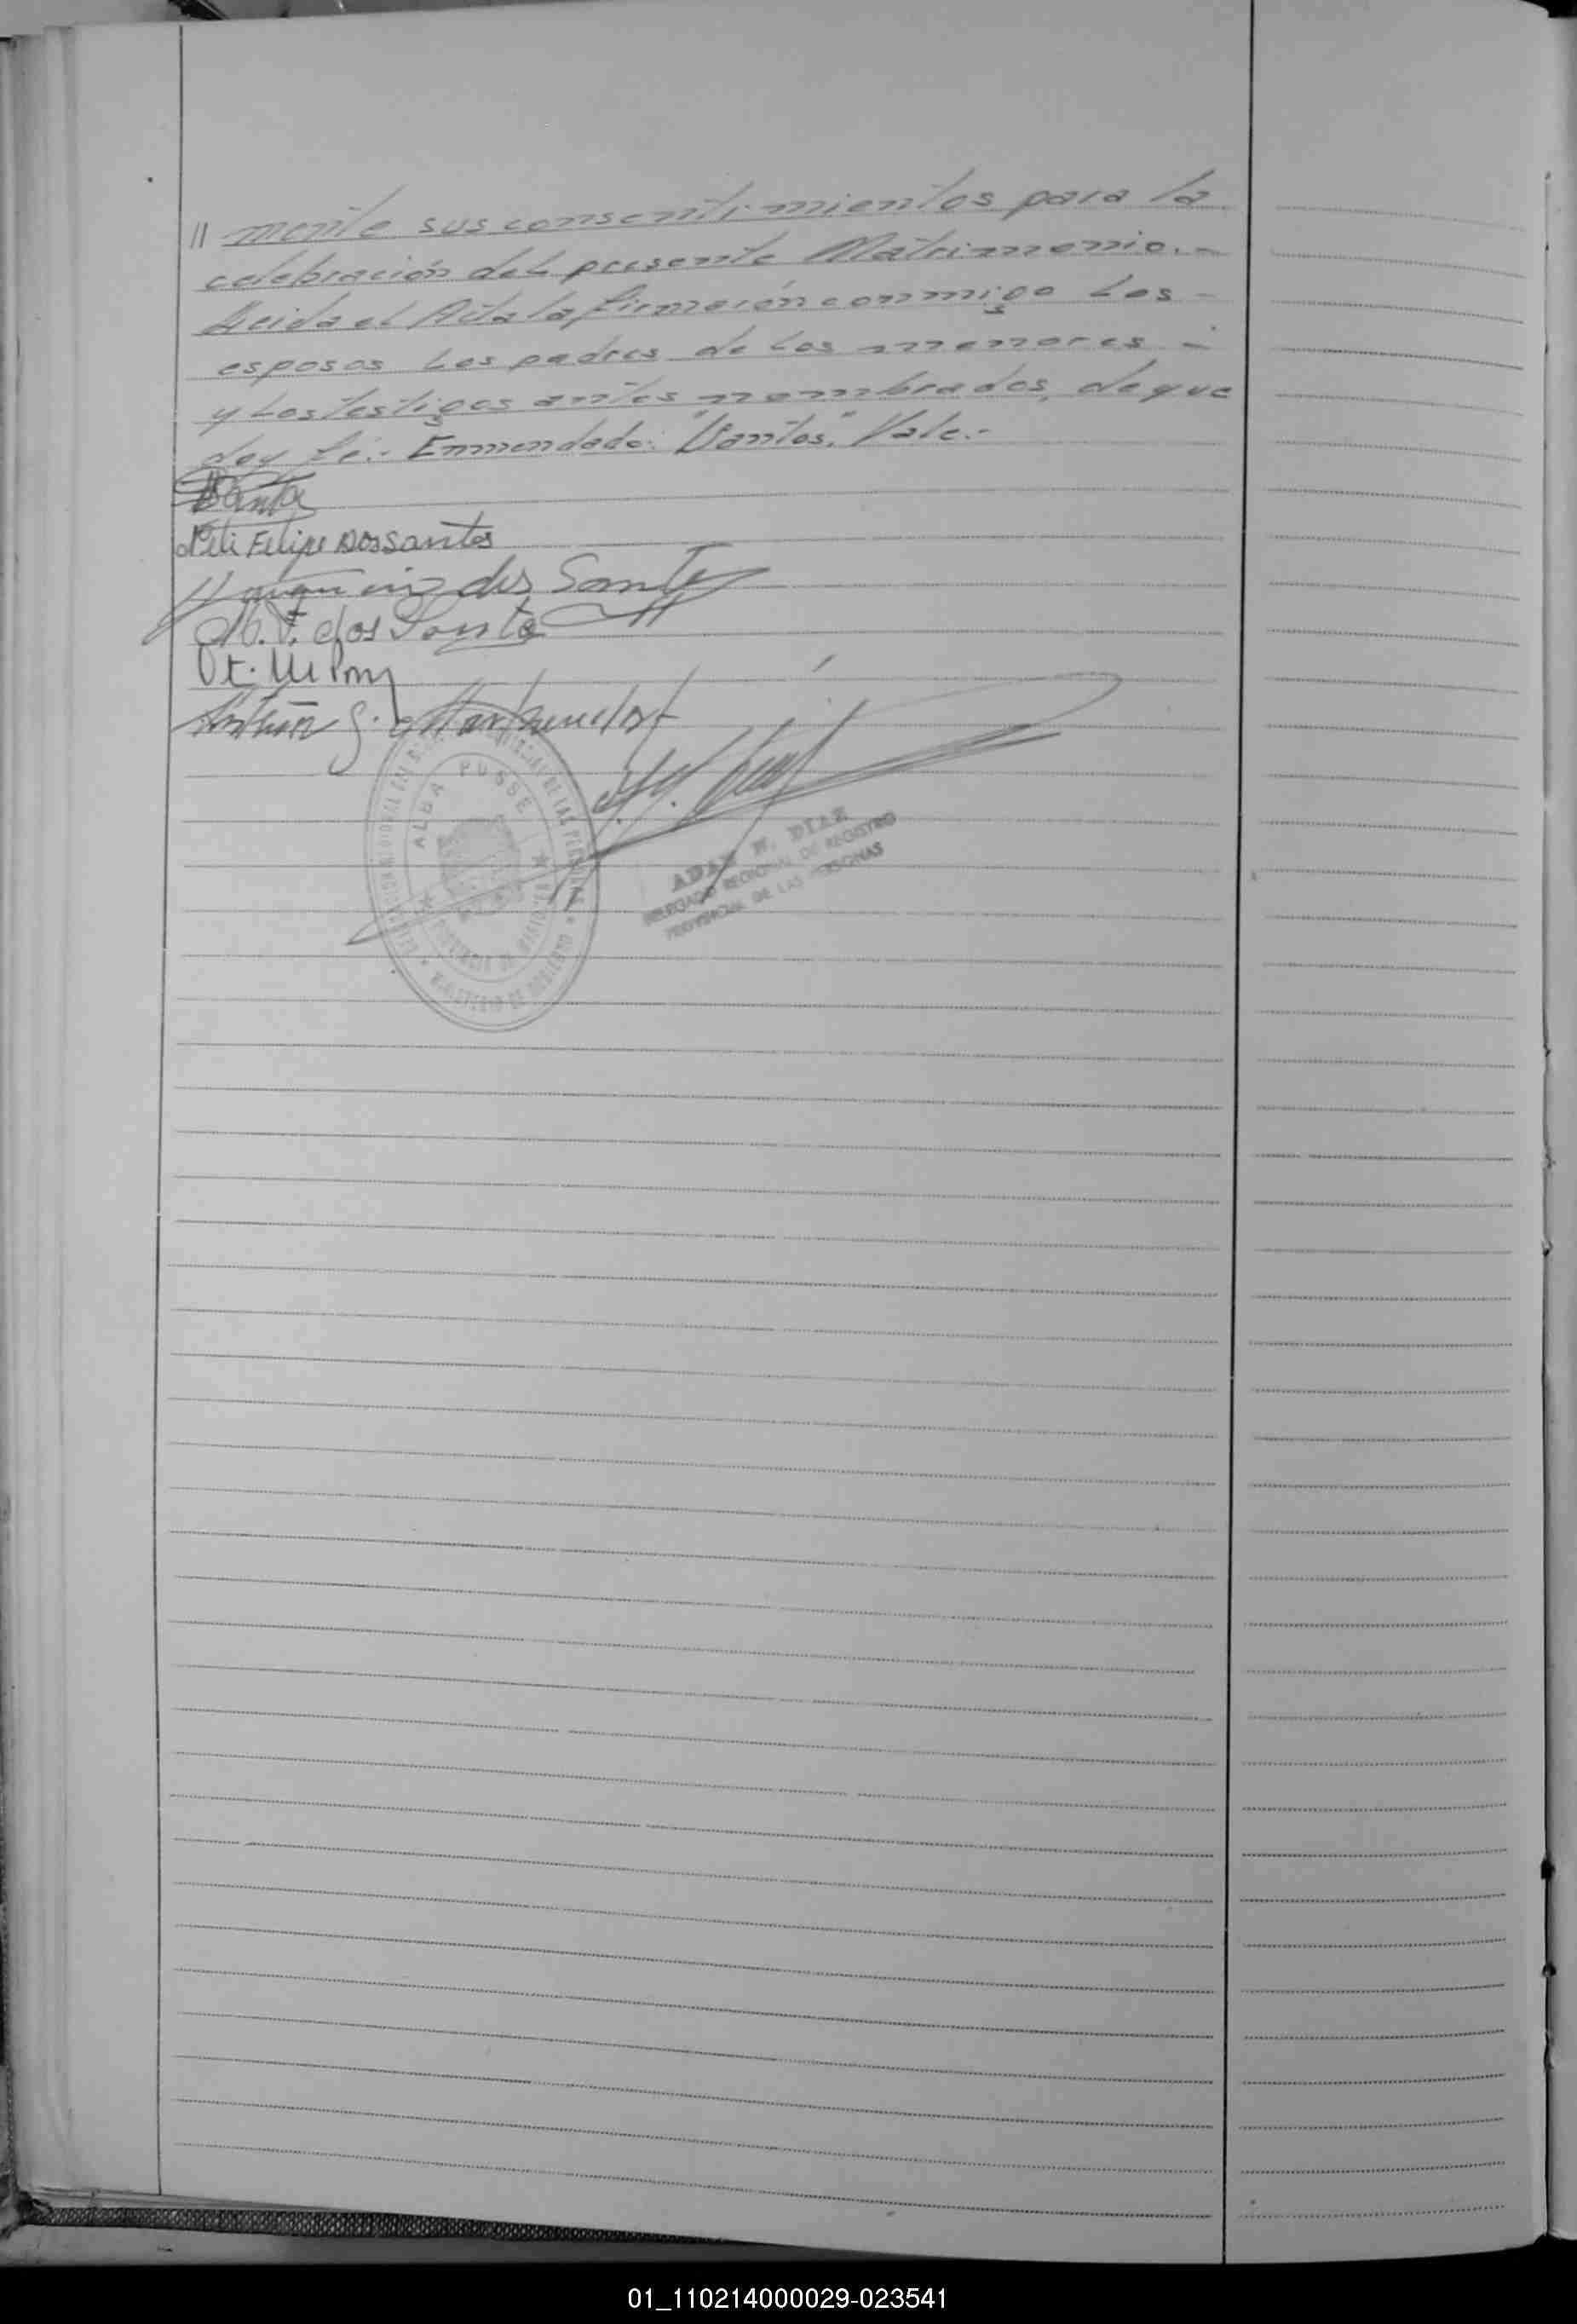 // mente sus consentimientos para la
celebración del presente Matrimonio.-
Leida el Acta la firmarón conmigo Los -
esposos Los padres de los menores -
y Los testigos antes nombrados, de que
doy fé.- Enmendado: "Santos". Vale.-
Neli Felipe Dos santos
dos Santos
M. F. dos Santo
S.
ALBA POSSE
MINISTERIO DE GOBIERNO
ADAN W. DIAZ
DELEGADO REGIONAL DE REGISTRO
PROVINCIAL DE LAS PERSONAS
01_110214000029-023541